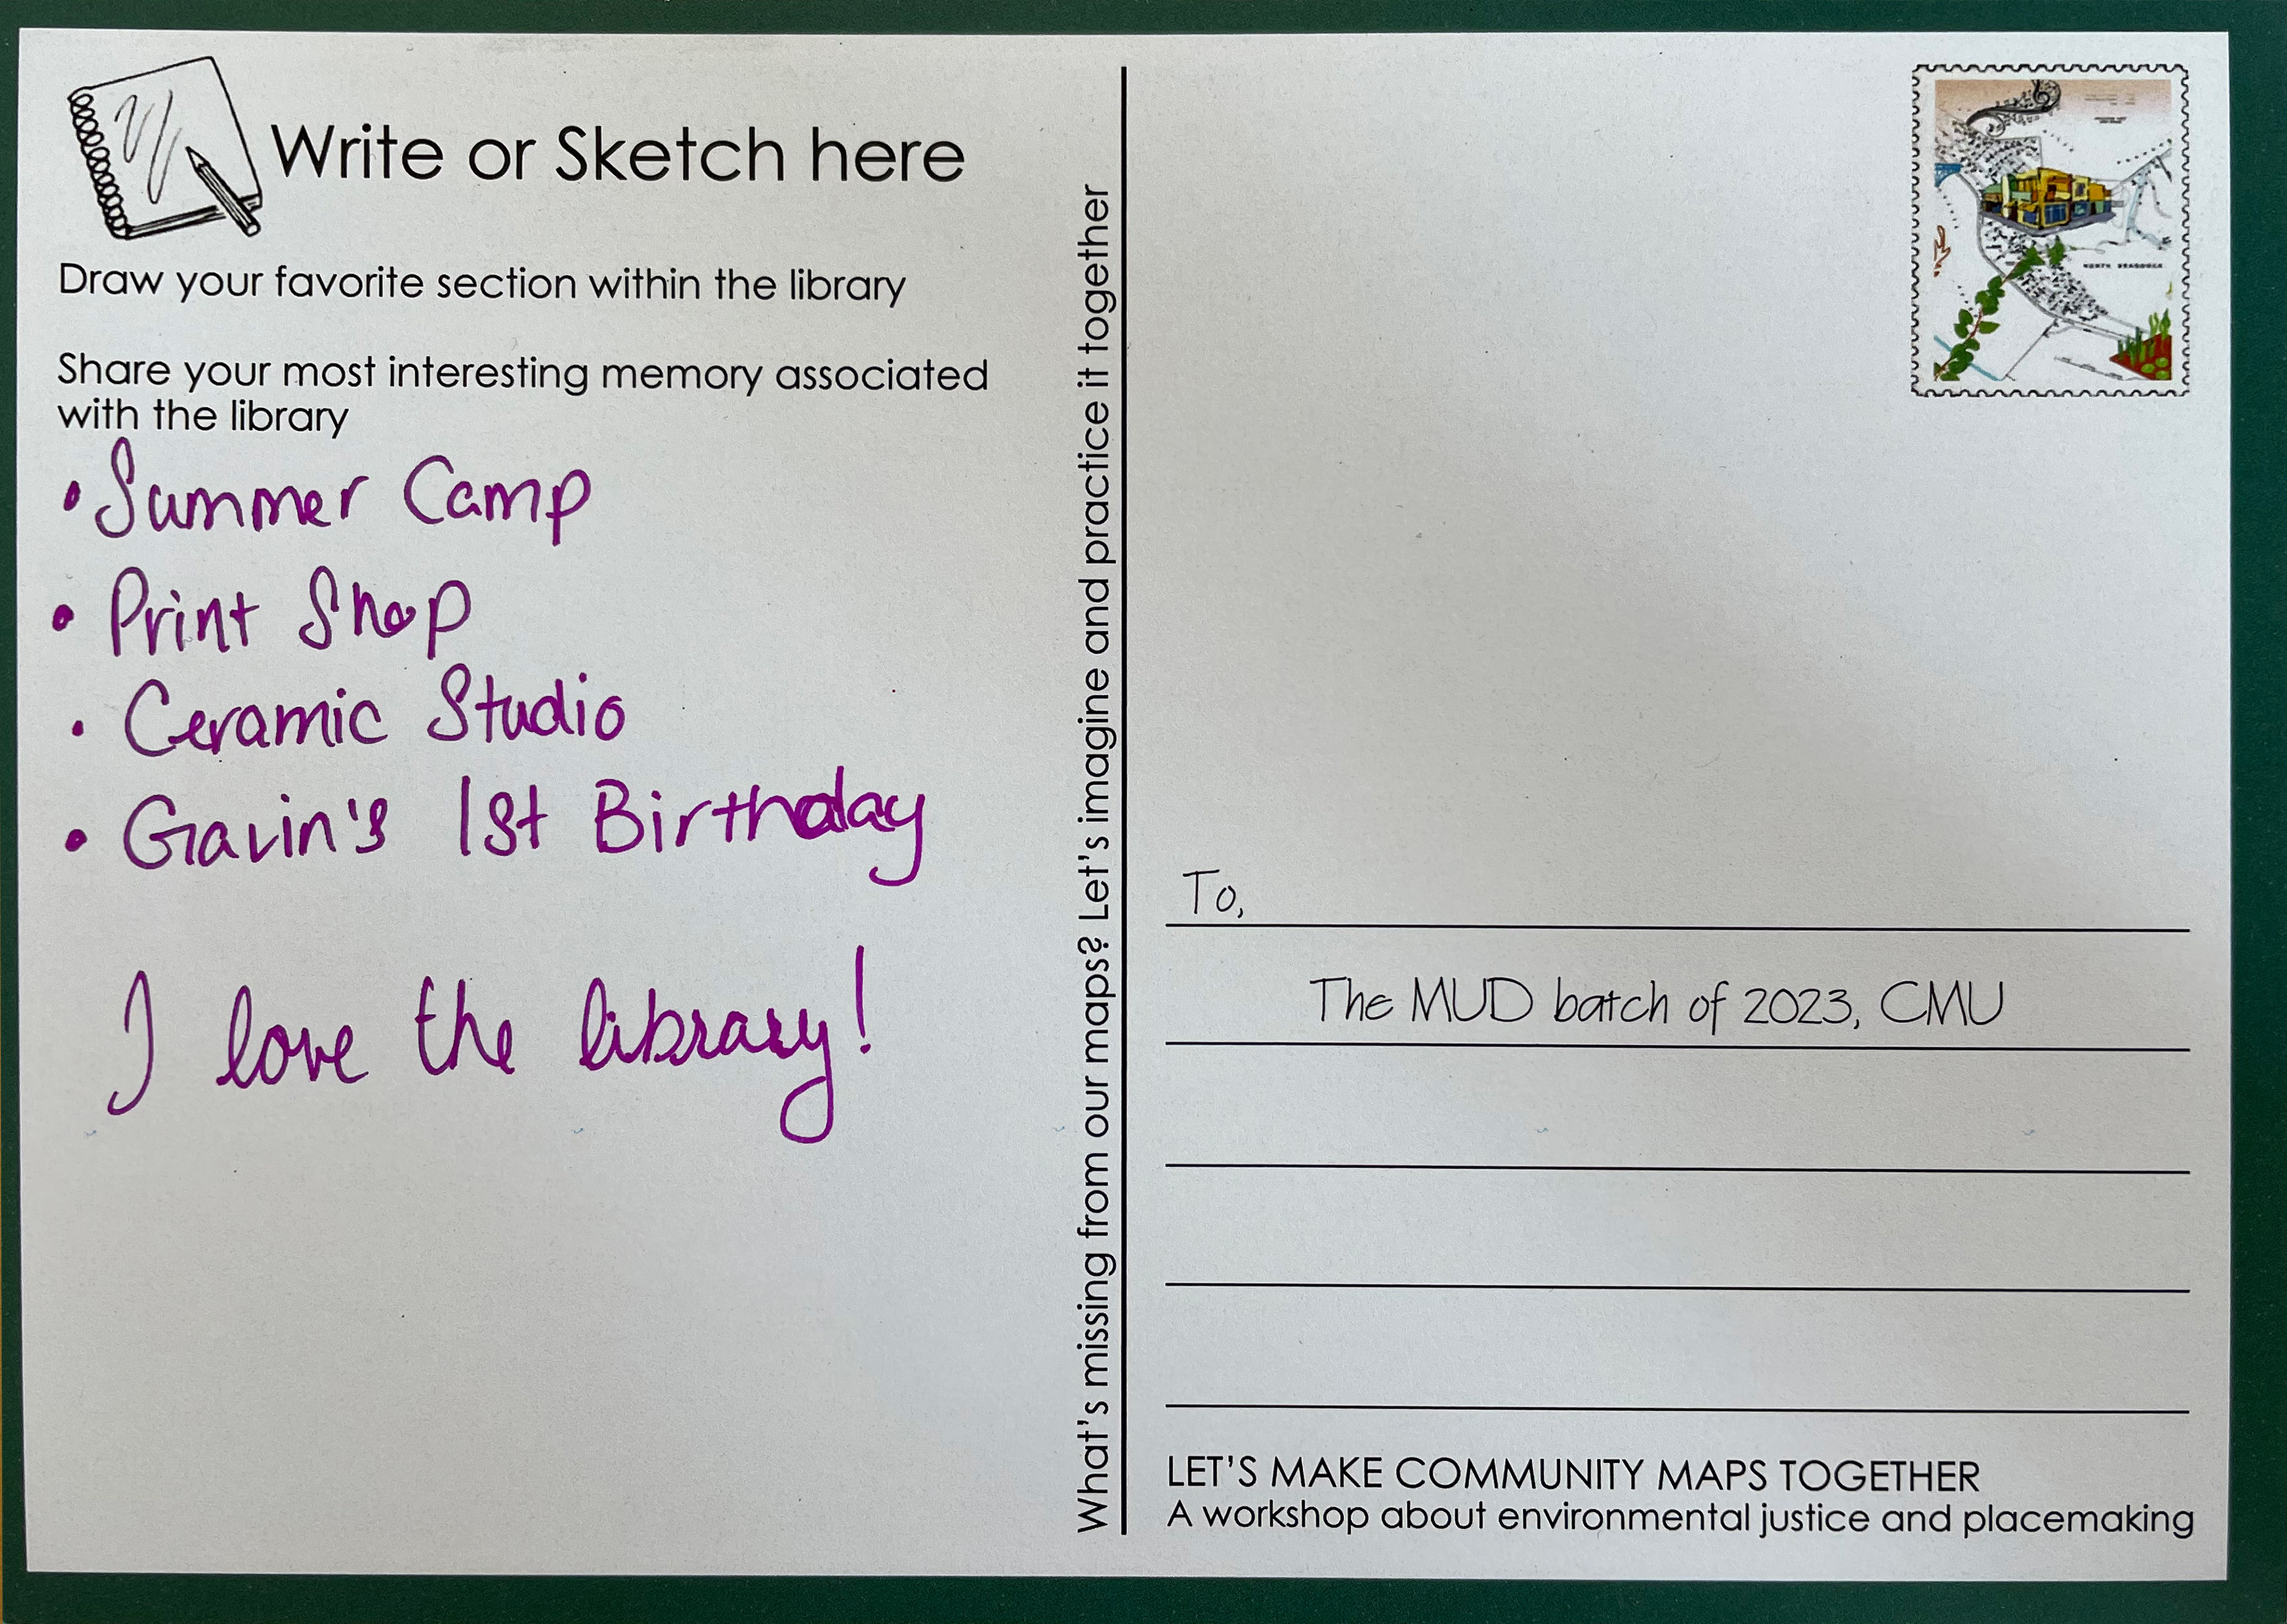 Write or Sketch here
Draw your favorite section within the library
Share your most interesting memory associated
with the library
• Summer Camp
• Print Shop
• Ceramic Studio
• Gavin's 1st Birthday
I love the library!
What's missing from our maps? Let's imagine and practice it together
To,
The MUD batch of 2023, CMU
LET'S MAKE COMMUNITY MAPS TOGETHER
A workshop about environmental justice and placemaking